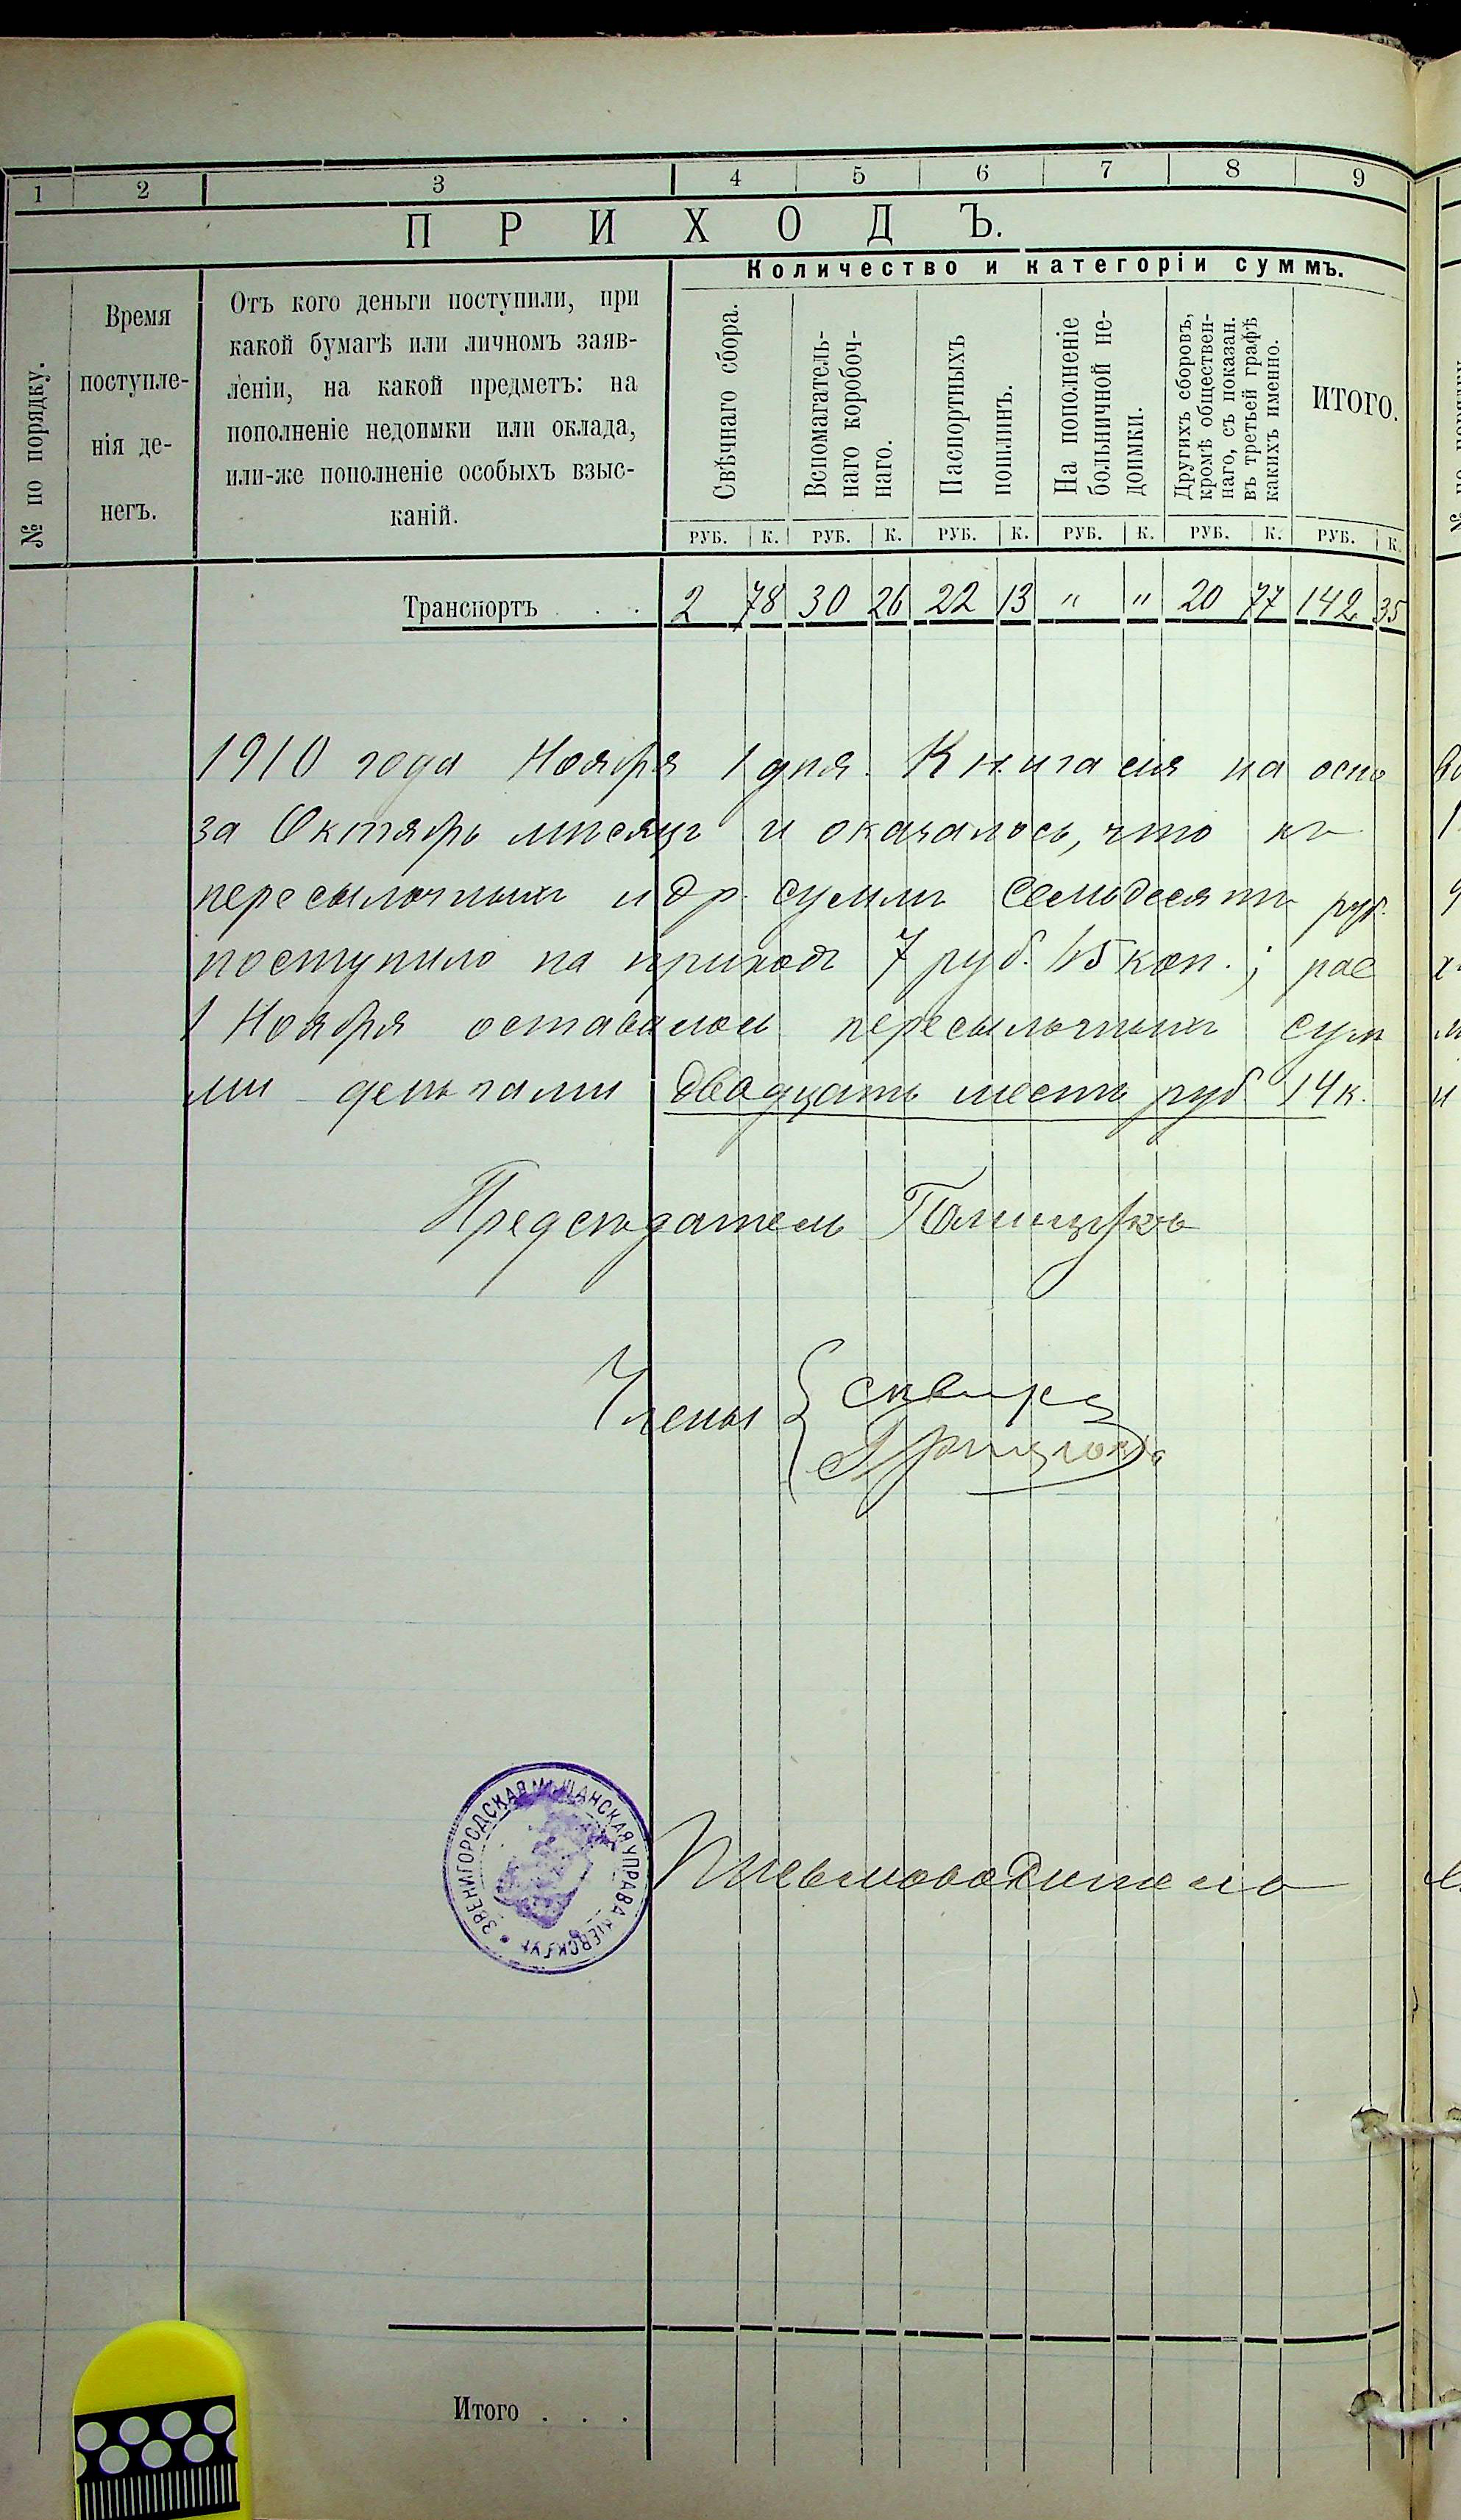 1 2 3 4 5 6 7 8 9
ПРИХОДЪ.
Количество и категоріи суммъ.
№ по порядку.
Время
поступле-
нія де-
негъ.
Отъ кого деньги поступили, при
какой бумагѣ или личномъ заяв-
леніи, на какой предметъ: на
пополненіе недоимки или оклада,
или-же пополненіе особыхъ взыс-
каній.
Свѣчнаго сбора.
Вспомагатель-
наго коробоч-
наго.
Паспортныхъ
пошлинъ.
На пополненіе
больничной не-
доимки.
Другихъ сборовъ,
кромѣ обществен-
наго, съ показан.
въ третьей графѣ
какихъ именно.
ИТОГО.
РУБ. К. РУБ. К. РУБ. К. РУБ. К. РУБ. К. РУБ. К.
Транспортъ . . . 2 78 30 26 22 13 " " 20 77 142 35
1910 года Ноября 1 дня. Книга сія на осно
за Октябрь мѣсяцъ и оказалось, что къ
пересылочныхъ и др. суммъ семьдесятъ руб.
поступило на приходъ 7 руб. 45 коп.; рас
1 Ноября оставалось пересылочныхъ сум
ми деньгами двадцать шесть руб 14 к.
Предсѣдатель
Члены
ЗВЕНИГОРОДСКАЯ МѢЩАНСКАЯ УПРАВА КІЕВСК. ГУБ.
Письмоводитель
Итого . . .